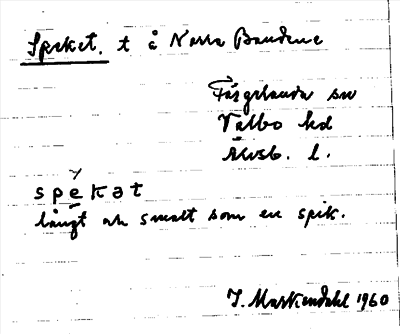 Speket. t å Norra Bandene
Färgelanda sn
Valbo hd
Älvsb. l.
spekət
långt och smalt som en spik.
1960